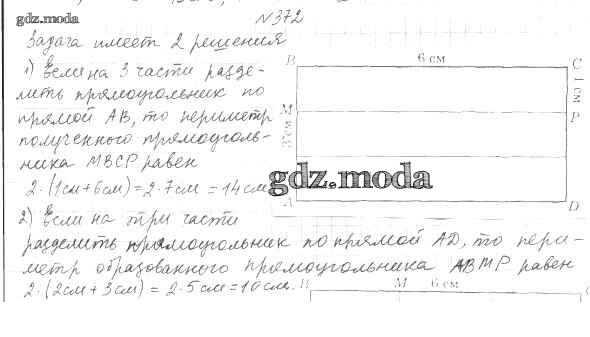 gdz.moda
№372
Задача имеет 2 решения
1) Если на 3 части разде-
лить прямоугольник по
прямой АВ, то периметр
полученного прямоуголь-
ника МВСР равен
2·(1см+6см)=2·7см=14см
2) Если на три части
разделить прямоугольник по прямой AD, то пери-
метр образованного прямоугольника АВМР равен
2·(2см+3см)=2·5см=10см.
B 6 см C
1 см
M P
3 см
gdz.moda
A D
B M 6 см